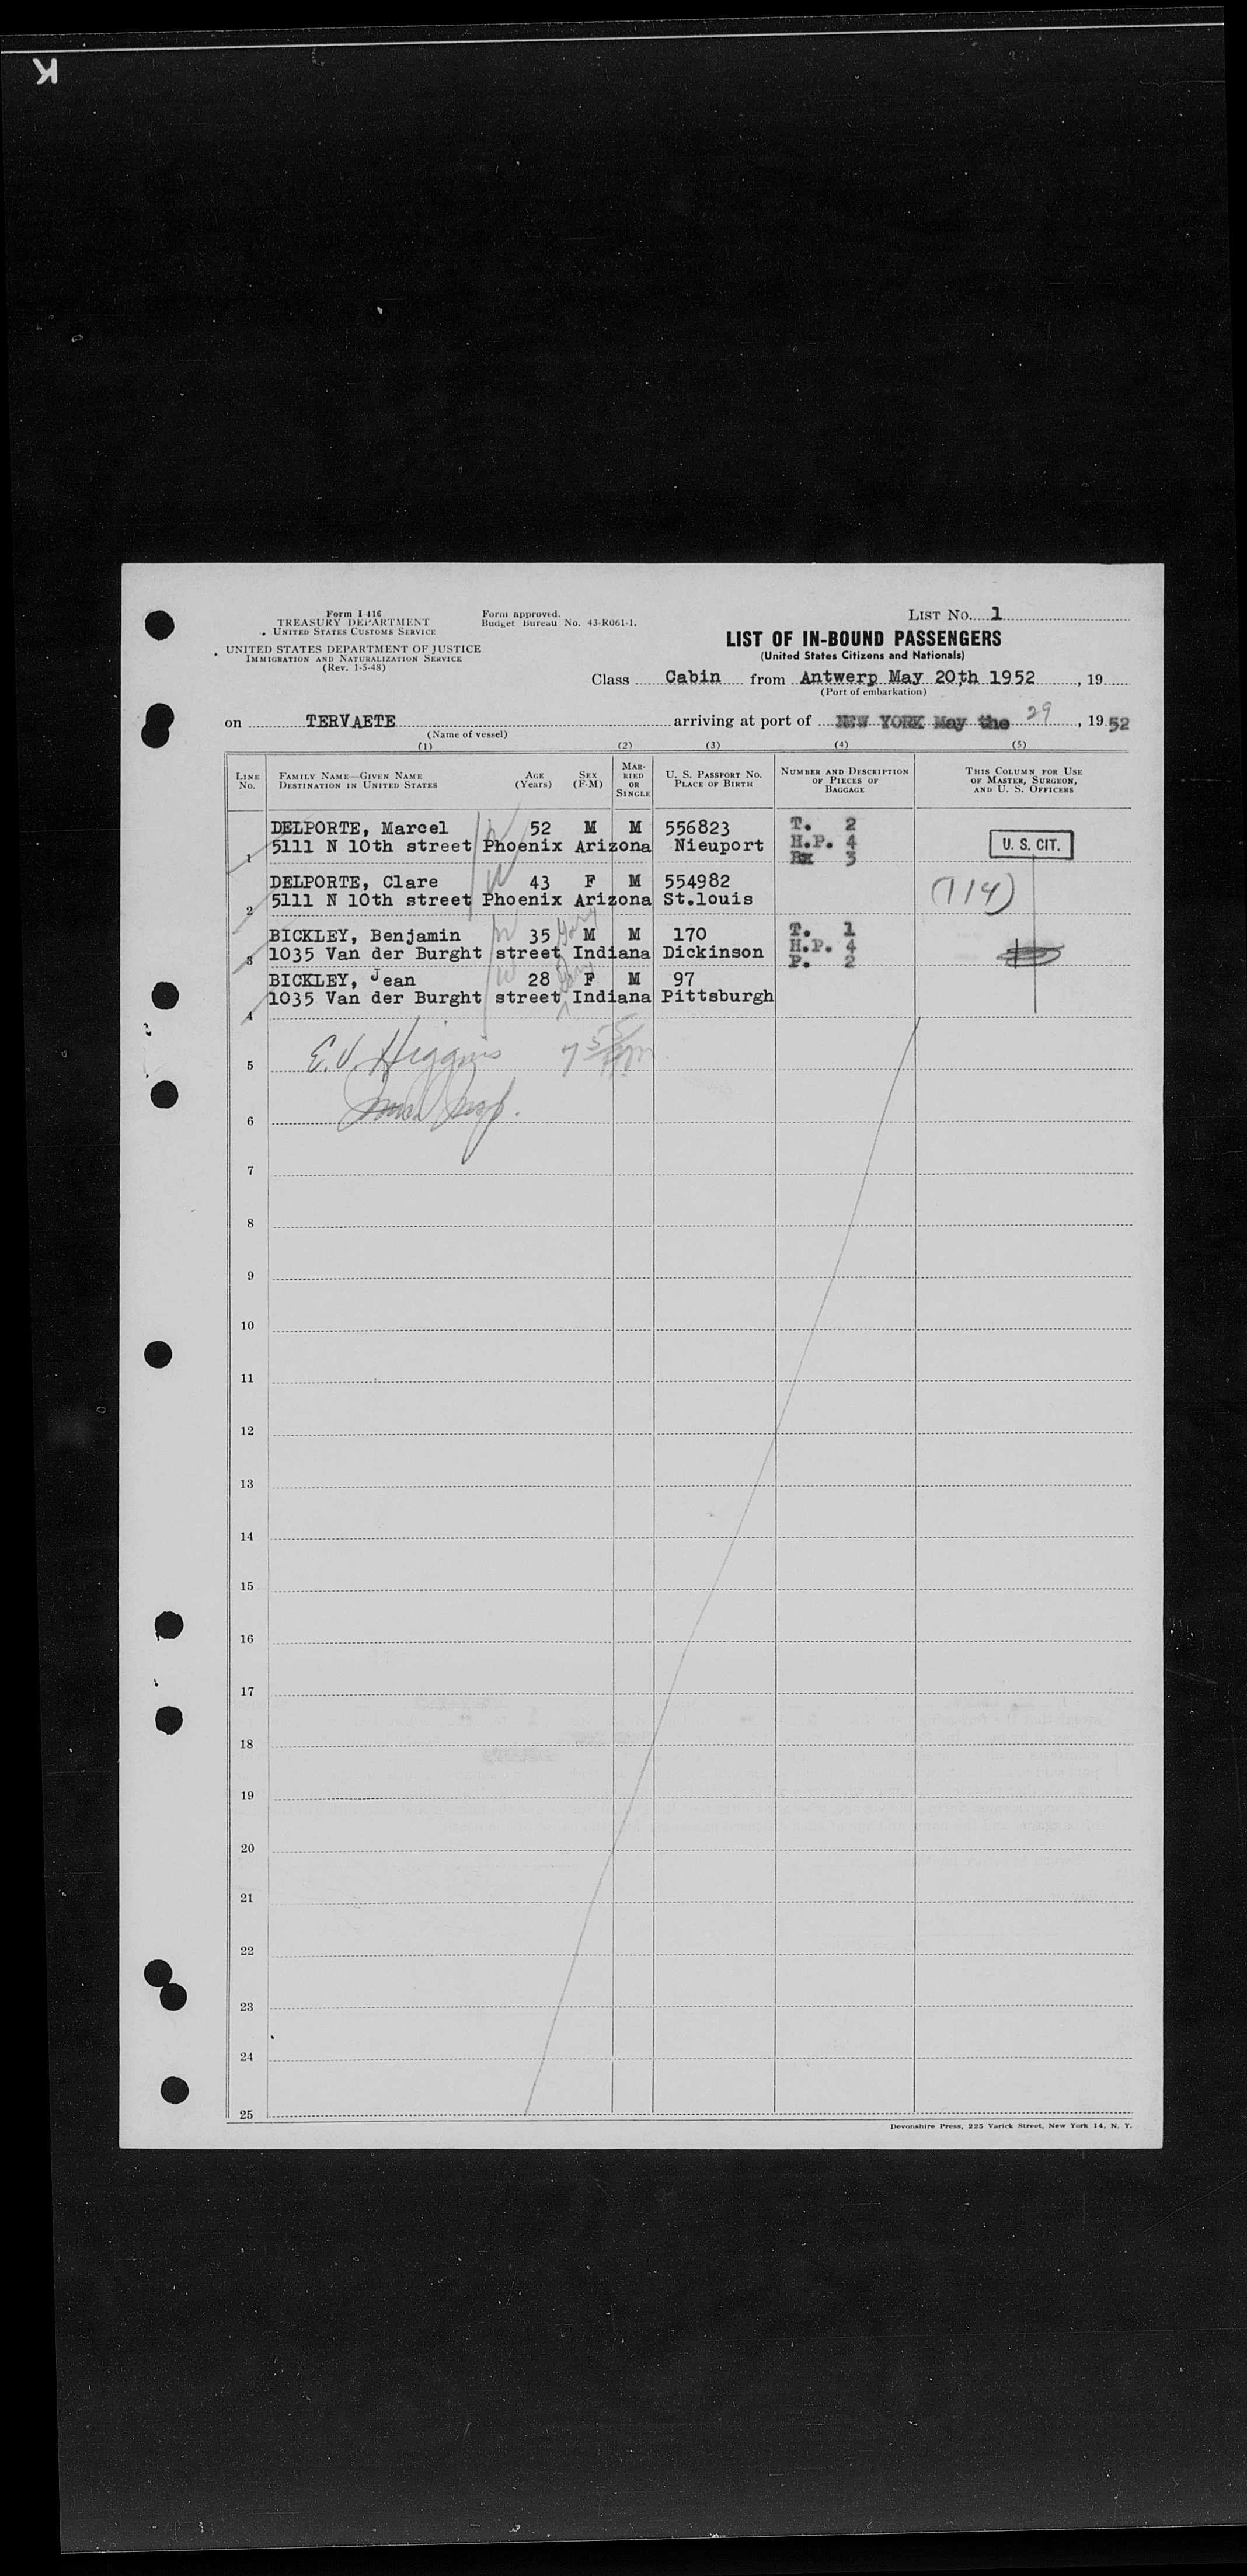 K
Form I-416
TREASURY DEPARTMENT
UNITED STATES CUSTOMS SERVICE
UNITED STATES DEPARTMENT OF JUSTICE
IMMIGRATION AND NATURALIZATION SERVICE
(Rev. 1-5-48)
Form approved.
Budget Bureau No. 43-R061-1.
LIST NO. 1
LIST OF IN-BOUND PASSENGERS
(United States Citizens and Nationals)
Class Cabin from Antwerp May 20th 1952, 19
(Port of embarkation)
on TERVAETE arriving at port of NEW YORK May the 29, 1952
(Name of vessel)
(1) (2) (3) (4) (5)
LINE NO. FAMILY NAME—GIVEN NAME DESTINATION IN UNITED STATES AGE (Years) SEX (F-M) MARRIED OR SINGLE U. S. PASSPORT NO. PLACE OF BIRTH NUMBER AND DESCRIPTION OF PIECES OF BAGGAGE THIS COLUMN FOR USE OF MASTER, SURGEON, AND U. S. OFFICERS
DELPORTE, Marcel 52 M M 556823 T. 2
1 5111 N 10th street Phoenix Arizona Nieuport H.P. 4 U. S. CIT.
Bx 3
DELPORTE, Clare 43 F M 554982
2 5111 N 10th street Phoenix Arizona St.louis (114)
BICKLEY, Benjamin 35 Gary M M 170 T. 1
3 1035 Van der Burght street Indiana Dickinson H.P. 4
P. 2
BICKLEY, Jean 28 Gary F M 97
4 1035 Van der Burght street Indiana Pittsburgh
5 E.V. Higgins
6
7
8
9
10
11
12
13
14
15
16
17
18
19
20
21
22
23
24
25
Devonshire Press, 225 Varick Street, New York 14, N. Y.